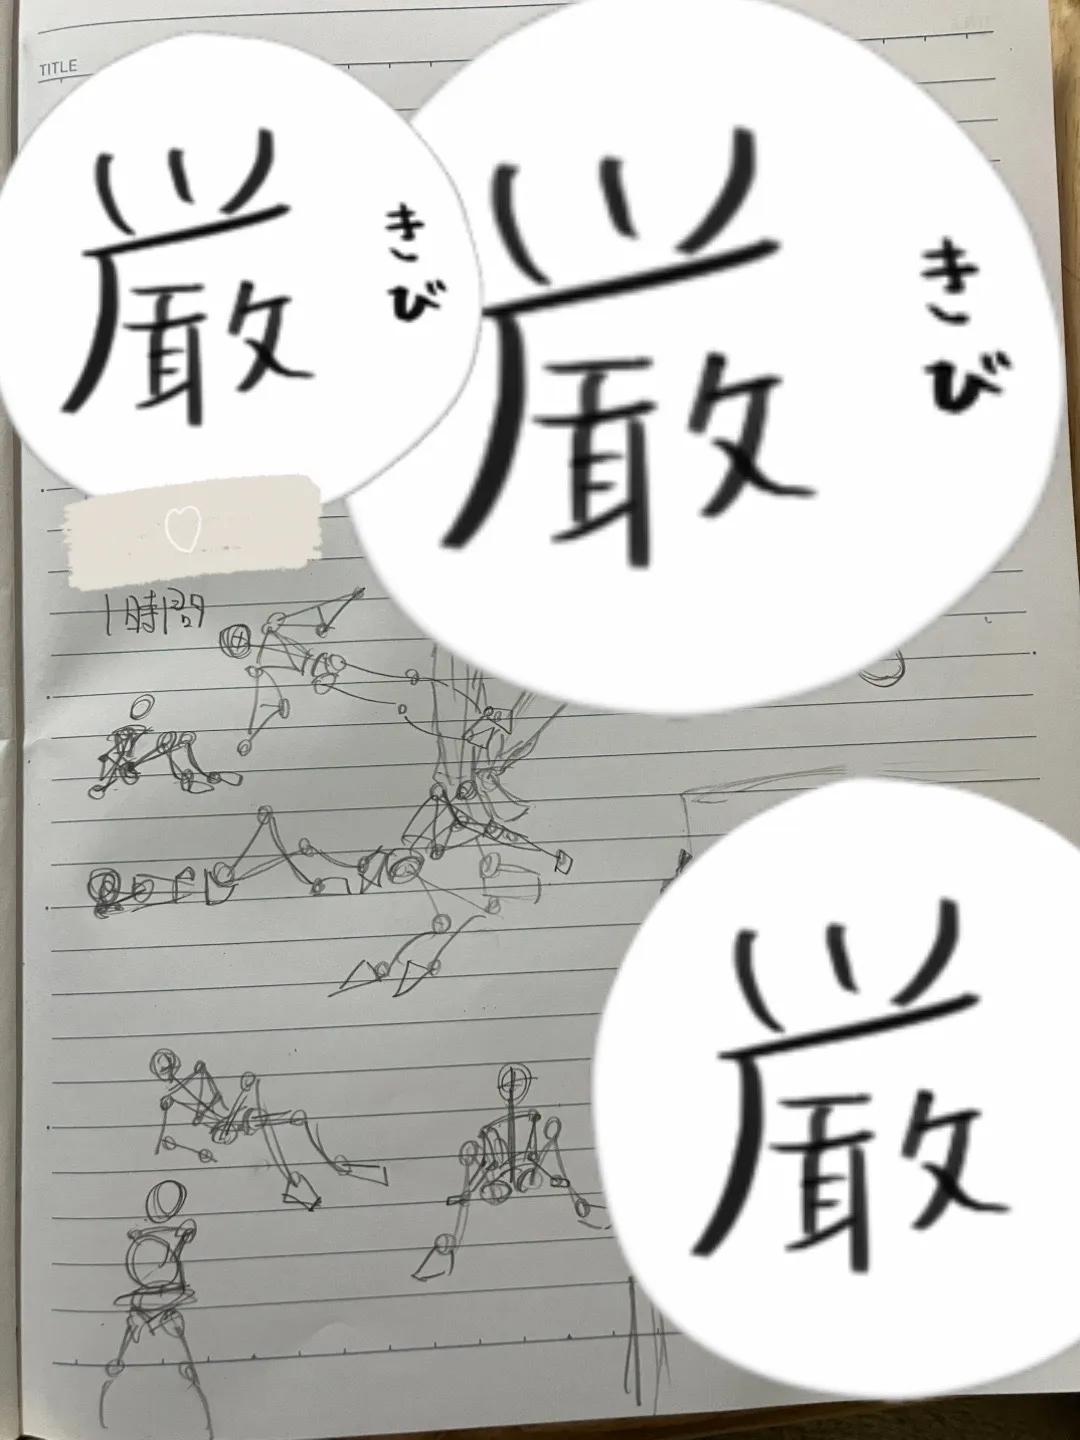 TITLE
厳
きび
厳
きび
1時間
厳